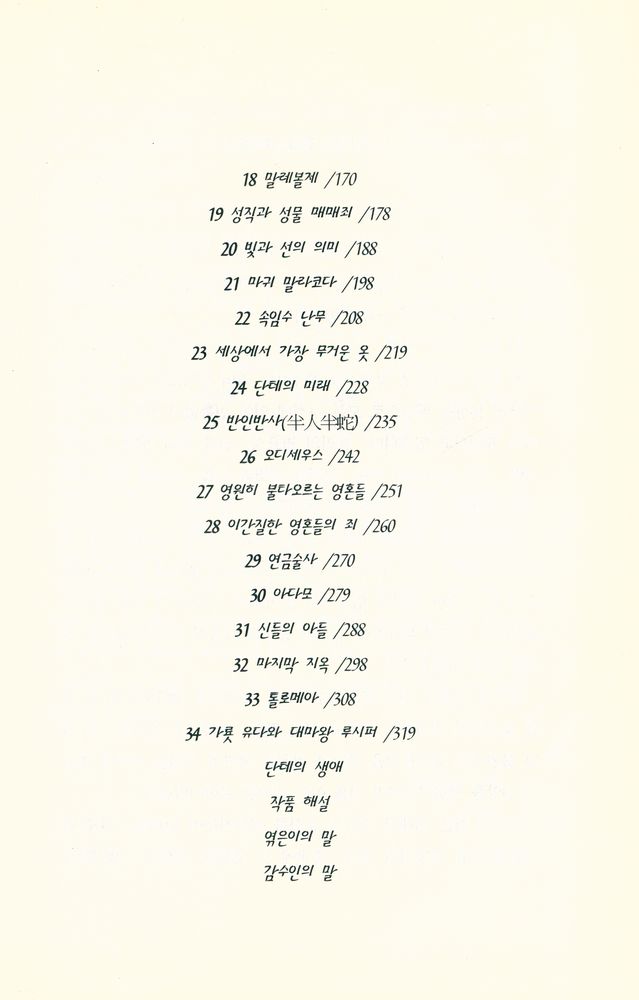 18 말레볼제 /170
19 성직과 성물 매매죄 /178
20 빛과 선의 의미 /188
21 마귀 말라코다 /198
22 속임수 난무 /208
23 세상에서 가장 무거운 옷 /219
24 단테의 미래 /228
25 반인반사(半人半蛇) /235
26 오디세우스 /242
27 영원히 불타오르는 영혼들 /251
28 이간질한 영혼들의 죄 /260
29 연금술사 /270
30 아다모 /279
31 신들의 아들 /288
32 마지막 지옥 /298
33 톨로메아 /308
34 가룟 유다와 대마왕 루시퍼 /319
단테의 생애
작품 해설
엮은이의 말
감수인의 말